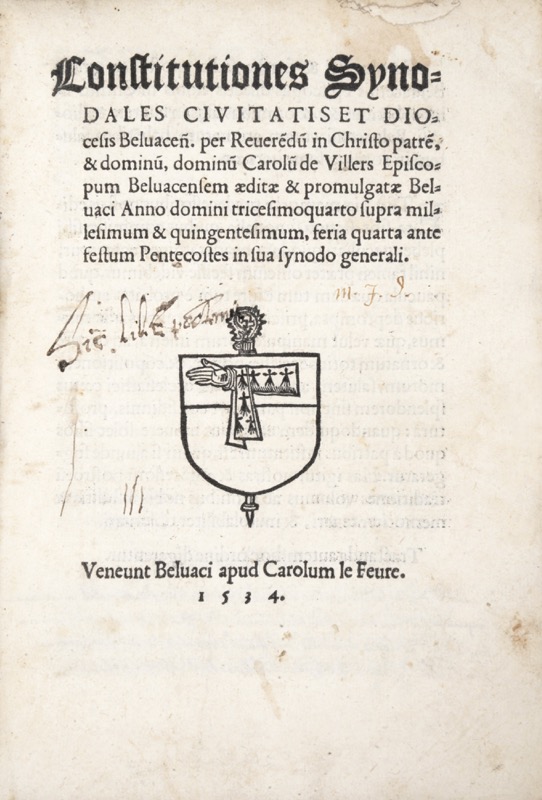 Constitutiones Syno-
DALES CIVITATIS ET DIO-
cesis Beluaceñ. per Reuerẽdũ in Christo patrẽ,
& dominũ, dominũ Carolũ de Villers Episco-
pum Beluacensem æditæ & promulgatæ Bel-
uaci Anno domini tricesimoquarto supra mil-
lesimum & quingentesimum, feria quarta ante
festum Pentecostes in sua synodo generali.
m. J. d.
Veneunt Beluaci apud Carolum le Feure.
1534.